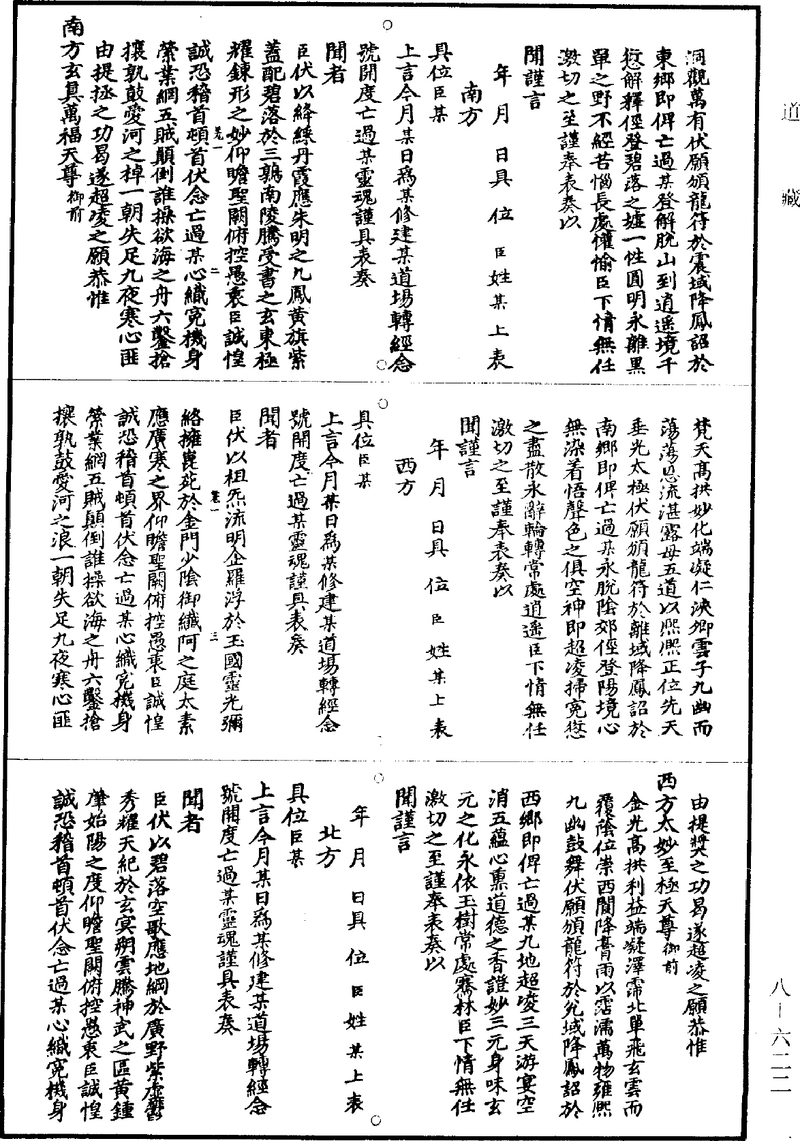 道藏
洞觀萬有伏願頒龍符於震域降鳳詔於
東鄉即俾亡過某登解脫山到逍遙境千
愆解釋徑登碧落之墟一性圓明永離黑
單之野不經苦惱長處懽愉臣下情無任
激切之至謹奉表奏以
聞謹言
年 月 日具 位 臣 姓 某 上 表
南方
具位臣某
上言今月某日為某修建某道場轉經念
號開度亡過某靈魂謹具表奏
聞者
臣伏以絳綵丹霞應朱明之九鳳黃旗紫
蓋配碧落於三鶉南陵騰受書之玄東極
耀鍊形之妙仰瞻聖闕俯控愚衷臣誠惶
卷一 二
誠恐稽首頓首伏念亡過某心織冤機身
縈業網五賊顛倒誰操欲海之舟六鑿搶
攘孰鼓愛河之棹一朝失足九夜寒心匪
由提拯之功曷遂超凌之願恭惟
南方玄真萬福天尊御前
梵天高拱妙化端凝仁決卿雲子九幽而
蕩蕩恩流湛露母五道以熙熙正位先天
垂光太極伏願頒龍符於離域降鳳詔於
南鄉即俾亡過某永脫陰郊徑登陽境心
無染着悟聲色之俱空神即超凌掃冤愆
之盡散永辭輪轉常處逍遙臣下情無任
激切之至謹奉表奏以
聞謹言
年 月 日具 位 臣 姓 某 上 表
西方
具位臣某
上言今月某日為某修建某道場轉經念
號開度亡過某靈魂謹具表奏
聞者
臣伏以柤炁流明企羅浮於玉國靈光彌
卷一 三
絡擁崑𦭘於金門少陰御織阿之庭太素
應廣寒之界仰瞻聖闕俯控愚衷臣誠惶
誠恐稽首頓首伏念亡過某心織冤機身
縈業網五賊顛倒誰操欲海之舟六鑿搶
攘孰鼓愛河之浪一朝失足九夜寒心匪
由提獎之功曷遂超凌之願恭惟
西方太妙至極天尊御前
金光高拱利益端凝澤霈北單飛玄雲而
覆蔭位崇西閶降膏雨以霑濡萬物雍熙
九幽鼓舞伏願頒龍符於兌域降鳳詔於
西鄉即俾亡過某九地超凌三天游宴空
消五蘊心熏道德之香證妙三元身味玄
元之化永依玉樹常處騫林臣下情無任
激切之至謹奉表奏以
聞謹言
年 月 日具 位 臣 姓 某 上 表
北方
具位臣某
上言今月某日為某修建某道場轉經念
號開度亡過某靈魂謹具表奏
聞者
臣伏以碧落空歌應地綱於廣野紫虛鬱
秀耀天紀於玄冥朔雲騰神武之區黃鍾
肇始陽之度仰瞻聖闕俯控愚衷臣誠惶
誠恐稽首頓首伏念亡過某心織冤機身
八－六二二